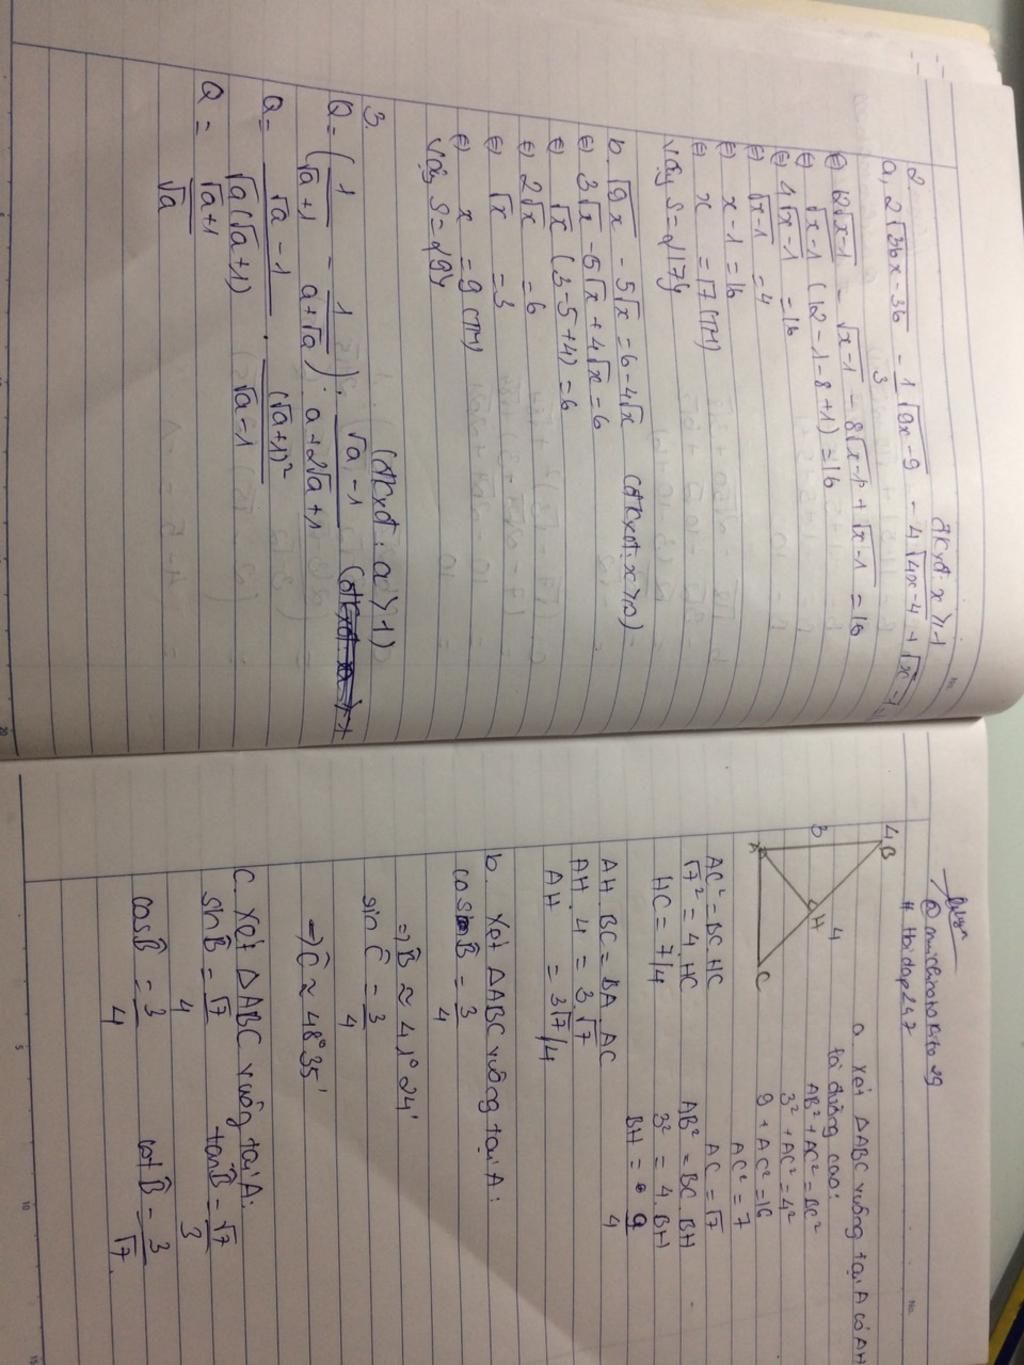 2.
ĐKXĐ: x ≥ 1
a, 2√36x-36 - 1/3 √9x-9 - 4√4x-4 + √x-1
⇔ 12√x-1 - √x-1 - 8√x-1 + √x-1 = 16
⇔ √x-1 (12-1-8+1) = 16
⇔ 4√x-1 = 16
⇔ √x-1 = 4
⇔ x-1 = 16
⇔ x = 17 (TM)
Vậy S={17}
b. √9x - 5√x = 6-4√x (ĐKXĐ: x ≥ 0)
⇔ 3√x - 5√x + 4√x = 6
⇔ √x (3-5+4) = 6
⇔ 2√x = 6
⇔ √x = 3
⇔ x = 9 (TM)
Vậy S={9}
3. (ĐKXĐ: a > 1)
Q = (1/√a+1 - 1/a+√a) : √a-1/a+2√a+1
Q = √a-1/√a(√a+1) . (√a+1)²/√a-1
Q = √a+1/√a
No.
20
#Hoidap247
No.
4
B
3
H
4
A
C
a. Xét ΔABC vuông tại A có AH
là đường cao:
AB² + AC² = BC²
3² + AC² = 4²
9 + AC² = 16
AC² = 7
AC = √7
AC² = BC.HC
√7² = 4.HC
HC = 7/4
AB² = BC.BH
3² = 4.BH
BH = 9/4
AH.BC = BA.AC
AH.4 = 3.√7
AH = 3√7/4
b. Xét ΔABC vuông tại A:
cosB̂ = 3/4
⇒ B̂ ≈ 41°24'
sinĈ = 3/4
⇒ Ĉ ≈ 48°35'
c. Xét ΔABC vuông tại A:
sinB̂ = √7/4 tanB̂ = √7/3
cosB̂ = 3/4 cotB̂ = 3/√7
5
10
15